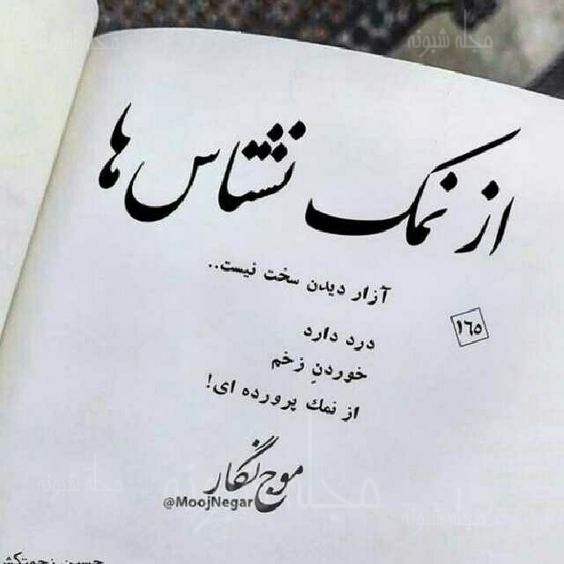 مجله شبونه
از نمک نشناس ها
آزار دیدن سخت نیست..
۱۶۵
درد دارد
خوردنِ زخم
از نمک پرورده ای!
موج نگار
@MoojNegar
مجله شبونه
مجله شبونه
حسین زحمتکش